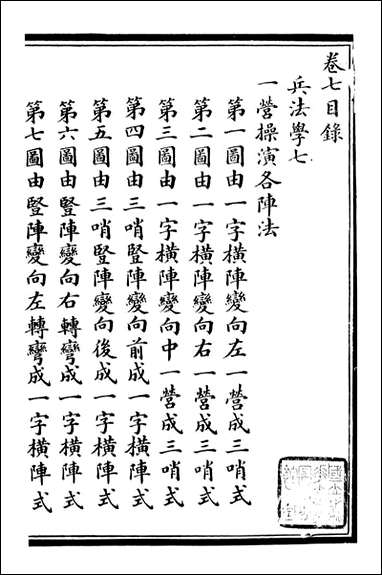 卷七目錄
兵法學七
一營操演各陣法
第一圖由一字橫陣變向左一營成三哨式
第二圖由一字橫陣變向右一營成三哨式
第三圖由一字橫陣變向中一營成三哨式
第四圖由三哨豎陣變向前成一字橫陣式
第五圖由三哨豎陣變向後成一字橫陣式
第六圖由豎陣變向右轉彎成一字橫陣式
第七圖由豎陣變向左轉彎成一字橫陣式